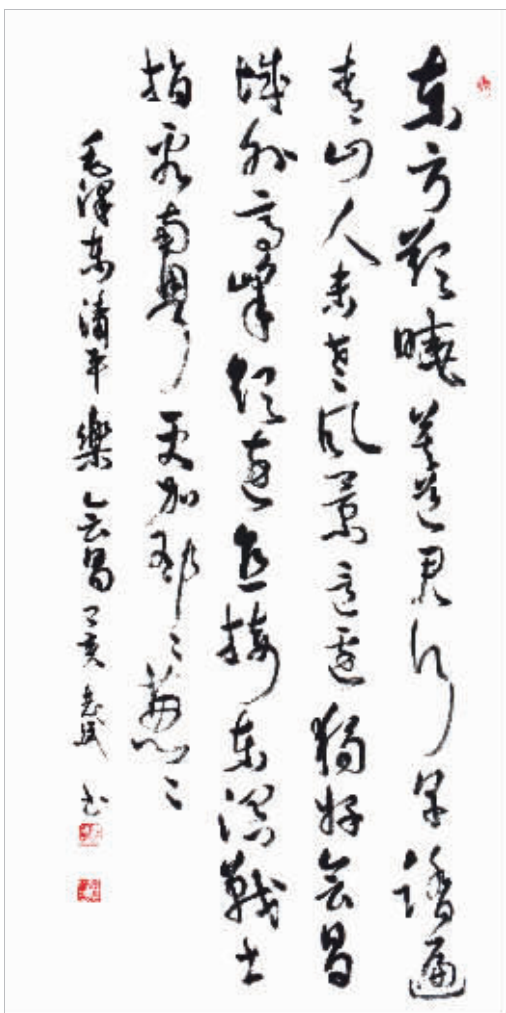 東方欲曉莫道君行早踏遍
青山人未老风景這邊獨好会昌
城外高峰颠连直接東溟戰士
指看南粤更加郁々葱々
毛澤東清平樂会昌丁亥 书